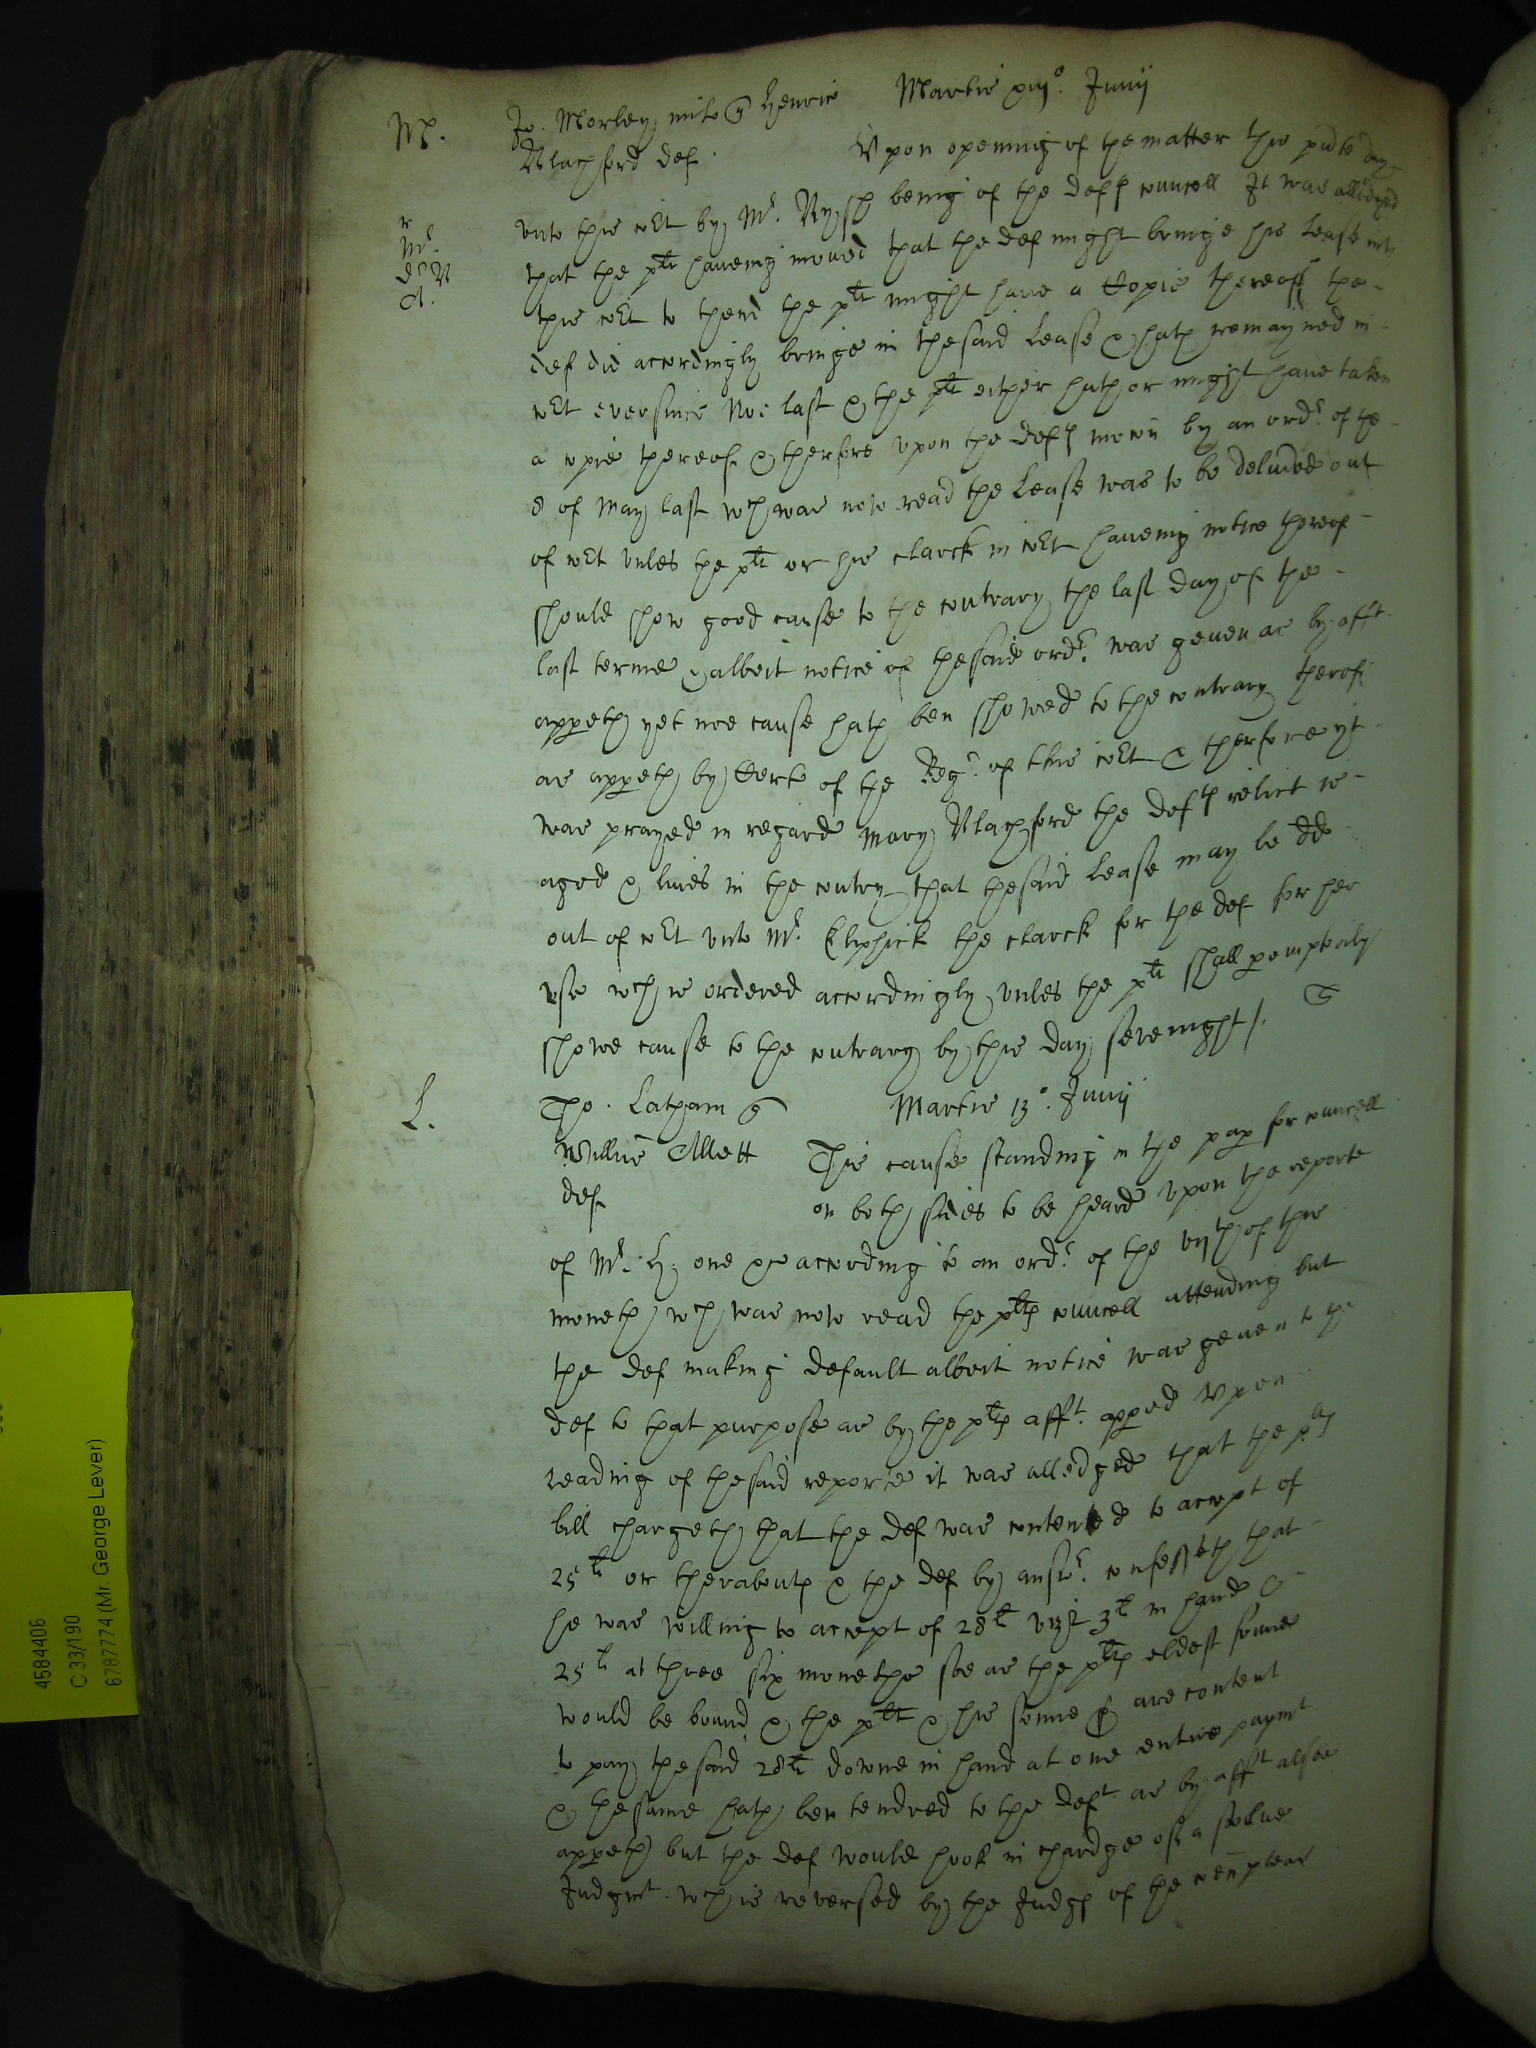 M. Jo. Morley milt q Henric Martis xiijo. Junij
Blachford def.
Upon opening of the matter this pnte day
r
Mr.
unto this co[ur]t by Mr. being of the defts councell It was alledged
that the plt haveing moved that the def might bringe his Lease into
this cort to thend the plt might have a Copie thereof the
def did accordingly bringe in the said Lease & hath remayned in
cort ever since Nov: last & the plt either hath or might have taken
a copie thereof & therfore upon the defts mocon by an ordr. of the
8 of May last wch was now read the Lease was to be delivred out
of cort unles the plt or his clarck in cort haveing notice thereof
should shew good cause to the contrary the last day of the
last terme & albeit notice of the said ordr. was geven as by afft.
appeth yet noe cause hath ben shewed to the contrary therof
as appeth by Certe of the Regr. of this cort & therfore yt
was prayed in regard Mary Blachford the defts relict is
aged & lives in the contry that the said Lease may be dd
out of cort unto Mr. Elphick the clarck for the def for her
use wch is ordered accordingly unles the plt shall peremptorily
showe cause to the contrary by this day sevenight /.
L. Tho. Latham q Martis 13o. Junij
Willm Allett This cause standing in the pap for councell
def on both sides to be heard upon the reporte
of Mr. H: one &c according to an ordr. of the vijth of this
moneth wch was now read the plts councell attending but
the def making default albeit notice was geven to the
def to that purpose as by the plts afft. appred Upon
reading of the said reporte it was alledged that the plts
bill chargeth that the def was contented to accept of
25li or therabouts & the def by answr. confesseth that
he was willing to accept of 28li vizt 3li in hand &
25li at three six moneths soe as the plts eldest sonne
would be bound & the plt & his sonne are content
to pay the said 28li downe in hand at one entire paymt
& the same hath ben tendred to the deft. as by afft alsoe
appeth but the def would hook in chardge of a
Judgmt. wch is reversed by the Judgs of the comon pleas
4584406
C 33/190
6787774 (Mr. George Lever)